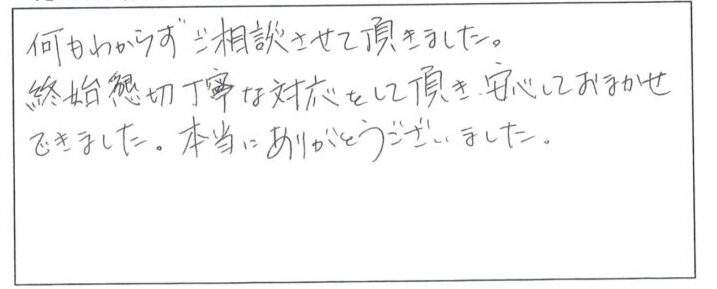 何もわからずご相談させて頂きました。
終始懇切丁寧な対応をして頂き、安心しておまかせ
できました。本当にありがとうございました。